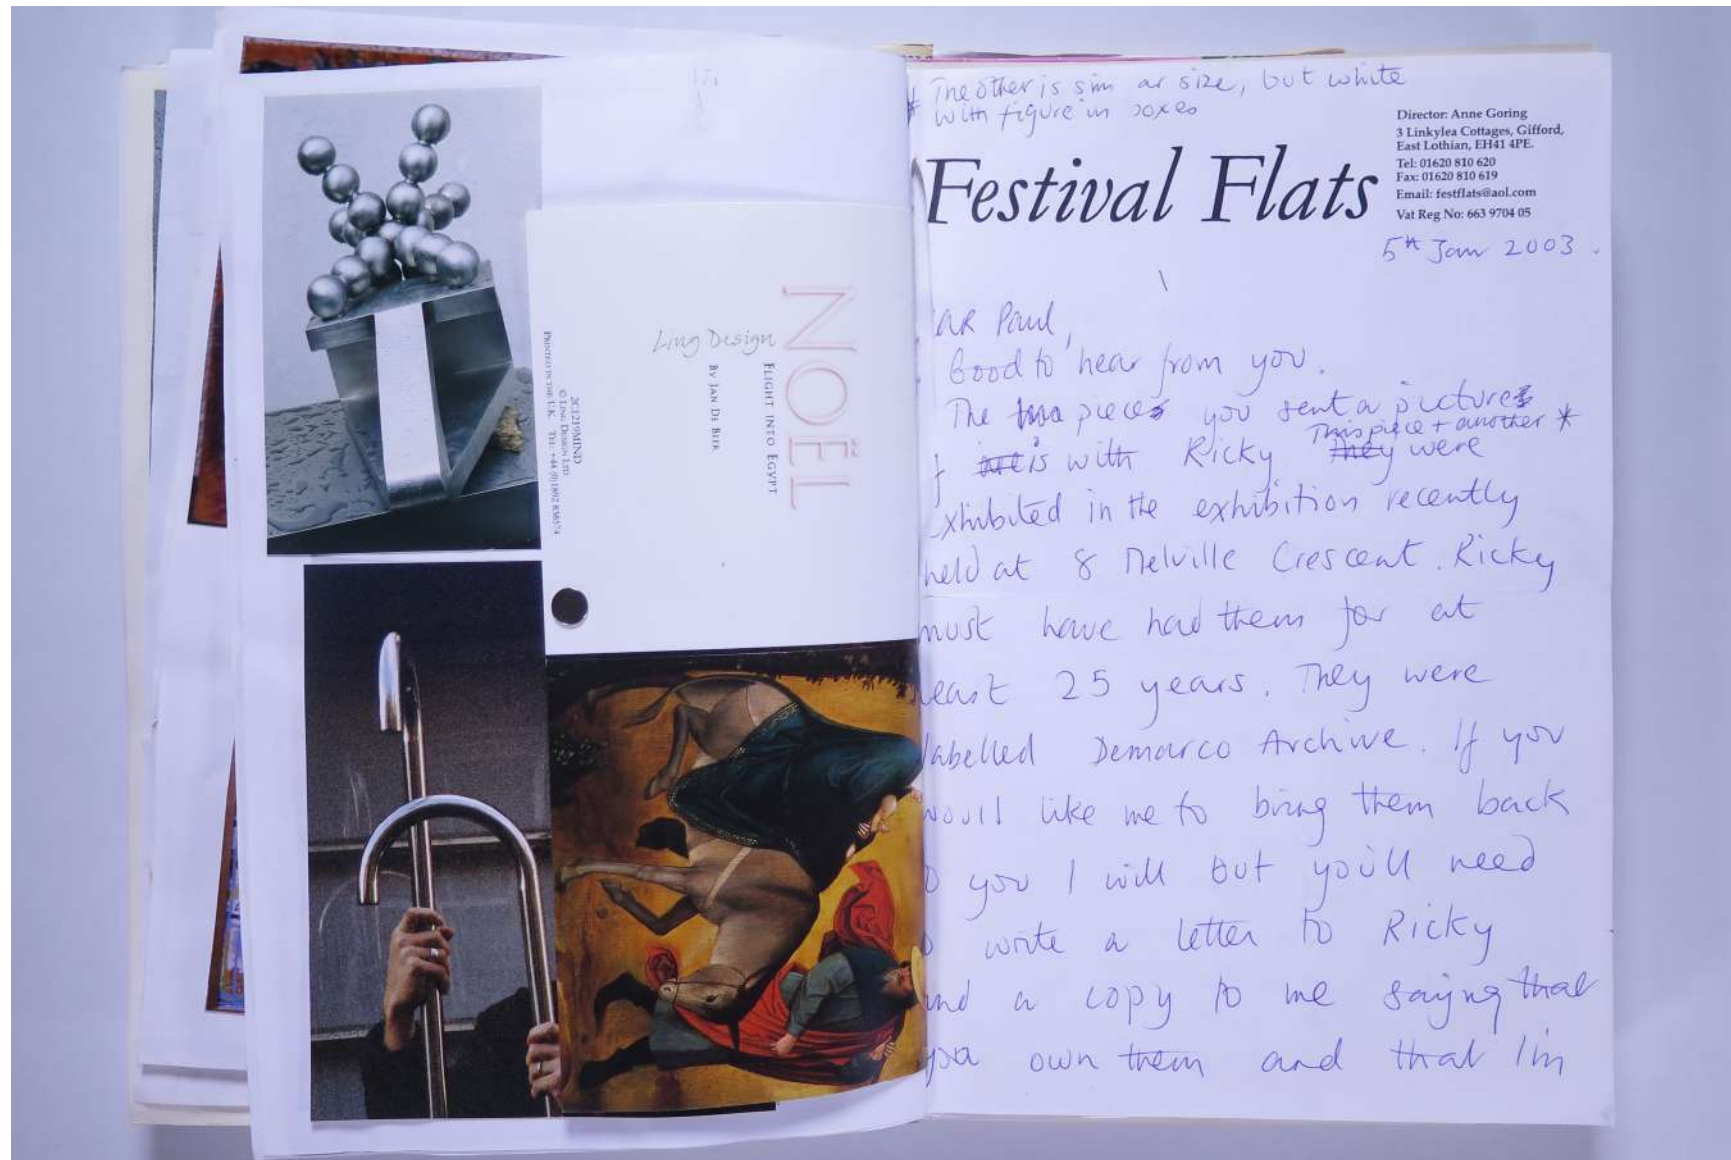 NOËL
FLIGHT INTO EGYPT
BY JAN DE BEER
Ling Design
2C1219MIND
© LING DESIGN LTD
PRINTED IN THE U.K. TEL: +44 (0)1892 838574
* The other is sim ar size, but white
with figure in oxes
Director: Anne Goring
3 Linkylea Cottages, Gifford,
East Lothian, EH41 4PE.
Tel: 01620 810 620
Fax: 01620 810 619
Email: festflats@aol.com
Vat Reg No: 663 9704 05
Festival Flats
5th Jan 2003.
ear Paul,
Good to hear from you.
The two pieces you sent a pictures
This piece + another *
f are is with Ricky They were
xhibited in the exhibition recently
held at 8 Melville Crescent. Ricky
must have had them for at
least 25 years. They were
labelled Demarco Archive. If you
would like me to bring them back
o you I will but you'll need
o write a letter to Ricky
and a copy to me saying that
you own them and that I'm